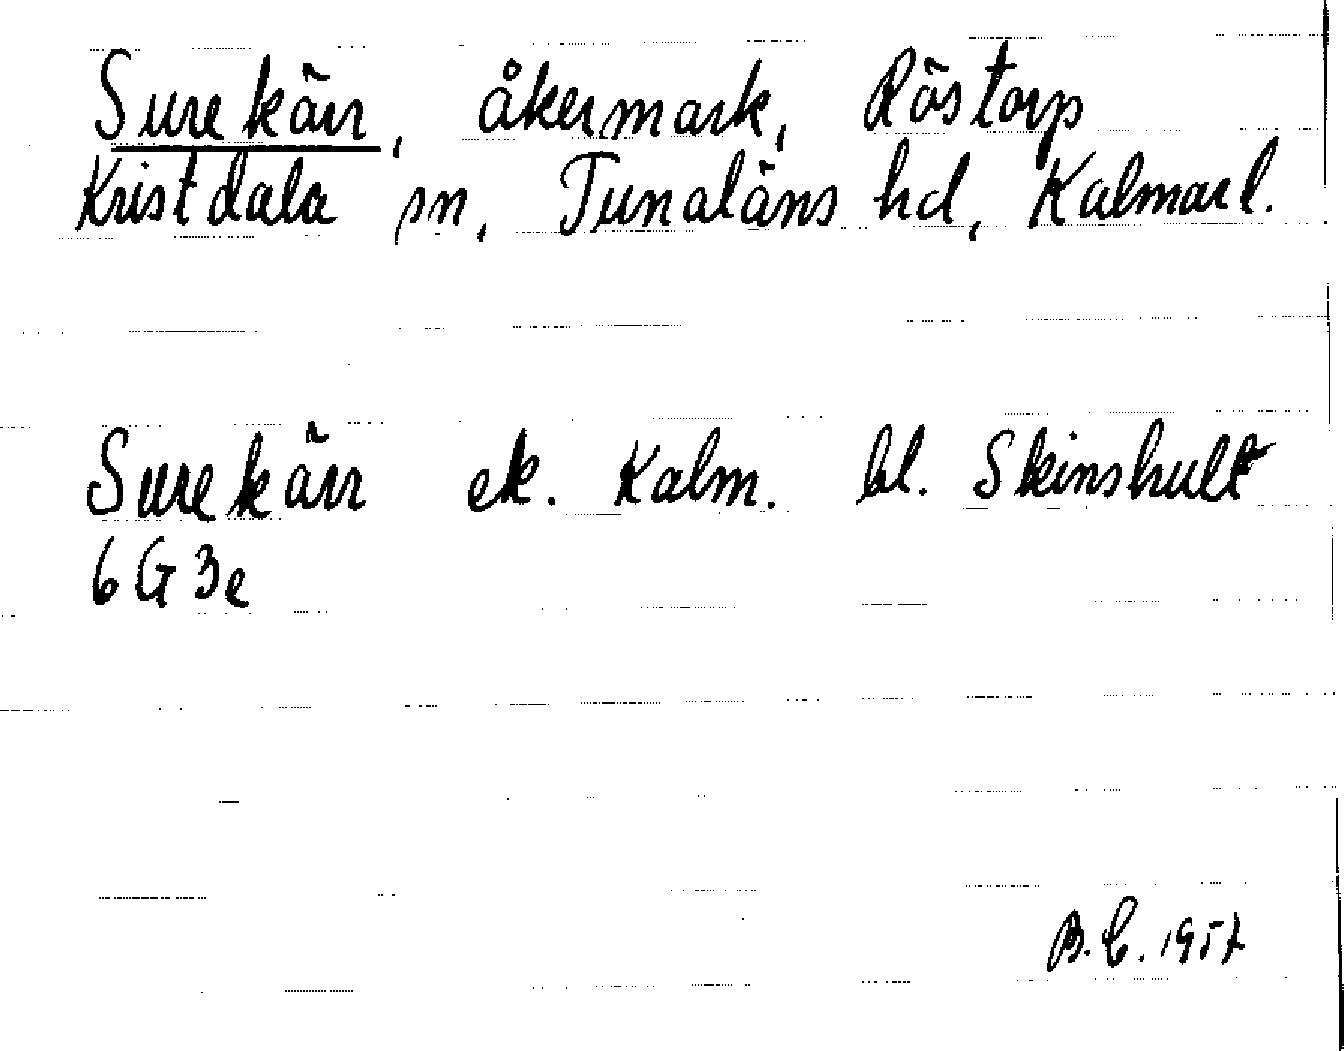 Surekärr, åkermark, Röstorp
Kristdala sn, Tunaläns hd, Kalmar l.
Surekärr ek. Kalm. bl. Skinshult
6G3e
B.C. 1957